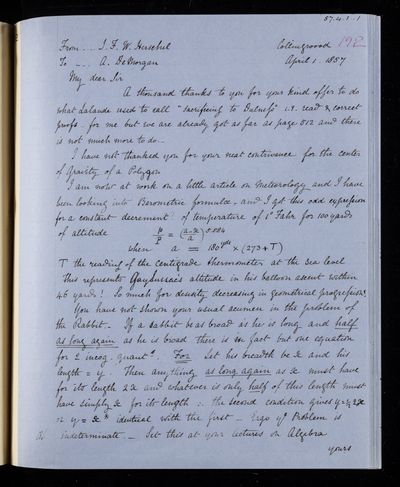 57.4.1.1
From .. J. F. W. Herschel Collingwood 192
To -.. A. DeMorgan April 1. 1857
My dear Sir
A thousand thanks to you for your kind offer to do
what Lalande used to call "sacrificing to Dulness" i.e. read & correct
proofs for me but we are already got as far as page 512 and there
is not much more to do..
I have not thanked you for your neat contrivance for the center
of gravity of a Polygon
I am now at work on a little article on Meteorology and I have
been looking into Barometric formulæ, and I got this odd expression
for a constant decrement of temperature of 1° Fahr for 100 yards
of altitude
when a = 180 yds × (273 + T)
T the reading of the Centigrade thermometer at the sea level
This represents Gay Lussac's altitude in his balloon ascent within
46 yards! So much for density decreasing in geometrical progression.
You have not shown your usual acumen in the problem of
the Rabbit. If a rabbit be as broad as he is long and half
as long again as he is broad there is in fact but one equation
for 2 incog. quant s. For Let his breadth be x and his
length = y. Then anything as long again as x must have
for its length 2x and whatever is only half of this length must
have simply x for its length ∴ the second condition gives y = ½ 2x
or y = x identical with the first – Ergo ye Problem is
indeterminate. – Set this at your lectures on Algebra
yours